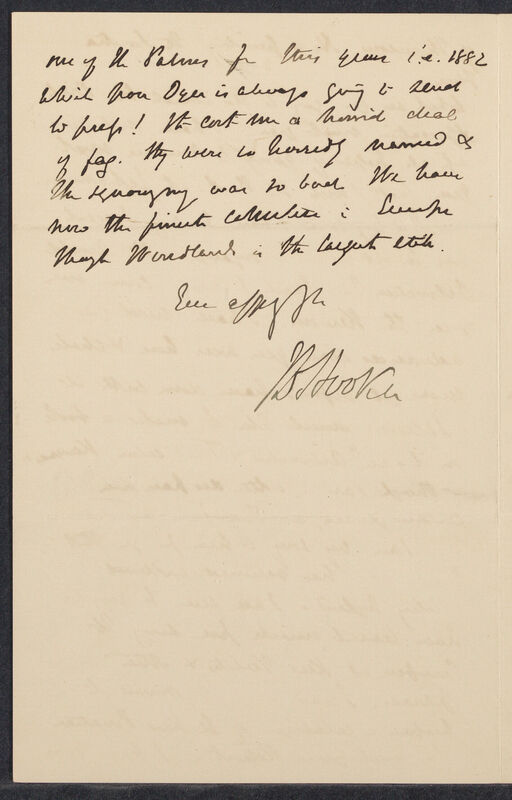 one of the Palms for this year i.e. 1882
which poor Dyer is always going to send
to press! It cost me a horrid deal
of fag. They were so horridly named &
the synonymy was so bad. We have
now the finest collection in Europe
though Wendland's is the largest still.
Ever affy yrs
JD Hooker